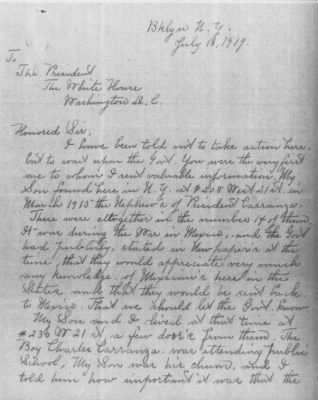 Bklyn N. Y.
July 18, 1919
To
The President
The White House
Washington D. C.
Honored Sir;
I have been told not to take action here,
but to wait upon the Govt. You were the very first
one to whom I sent valuable information. My
Son found here in N. Y. at # 208 West 21 St. in
March 1915 the Nephew's of President Carranza.
There were altogether in the number 14 of them.
It was during the War in Mexico, and the Govt
had publicly, stated in Newpaper's at the
time, that they would appreciate very much
any knowledge, of Mexicans here in the
States and that they would be sent back
to Mexico. That we should let the Govt. know
My Son and I lived at that time at
# 236 W 21 St a few door's from them. The
Boy Charles Carranza. was attending public
School, My Son was his chum, and I
told him how important it was that the